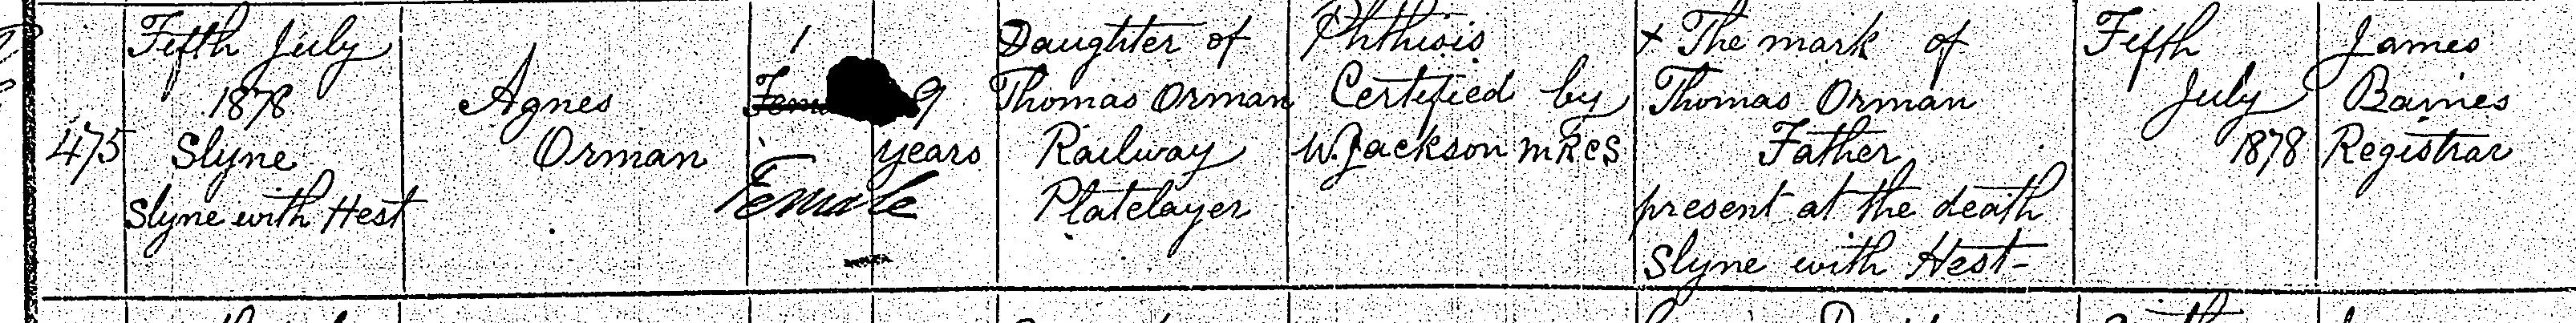 475
Fifth July
1878
Slyne
Slyne with Hest
Agnes
Orman
1
Female
9
years
Daughter of
Thomas Orman
Railway
Platelayer
Phthisis
Certified by
W. Jackson MRCS
X The mark of
Thomas Orman
Father
present at the death
Slyne with Hest
Fifth
July
1878
James
Baines
Registrar